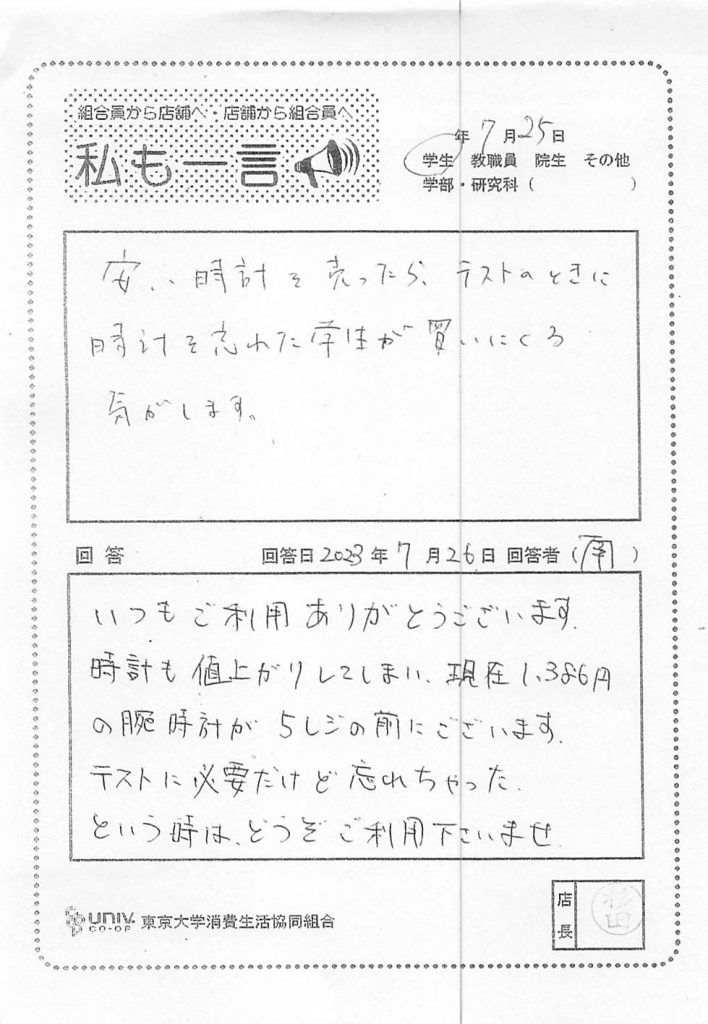 組合員から店舗へ 店舗から組合員へ
私も一言
年 7月25日
学生 教職員 院生 その他
学部・研究科( )
安い時計を売ったら、テストのときに
時計を忘れた学生が買いにくる
気がします。
回答 回答日2023年7月26日 回答者( )
いつもご利用ありがとうございます.
時計も値上がりしてしまい、現在1,386円
の腕時計が5レジの前にございます.
テストに必要だけど忘れちゃった.
という時は、どうぞご利用下さいませ
店長
杉田
UNIV. CO-OP 東京大学消費生活協同組合